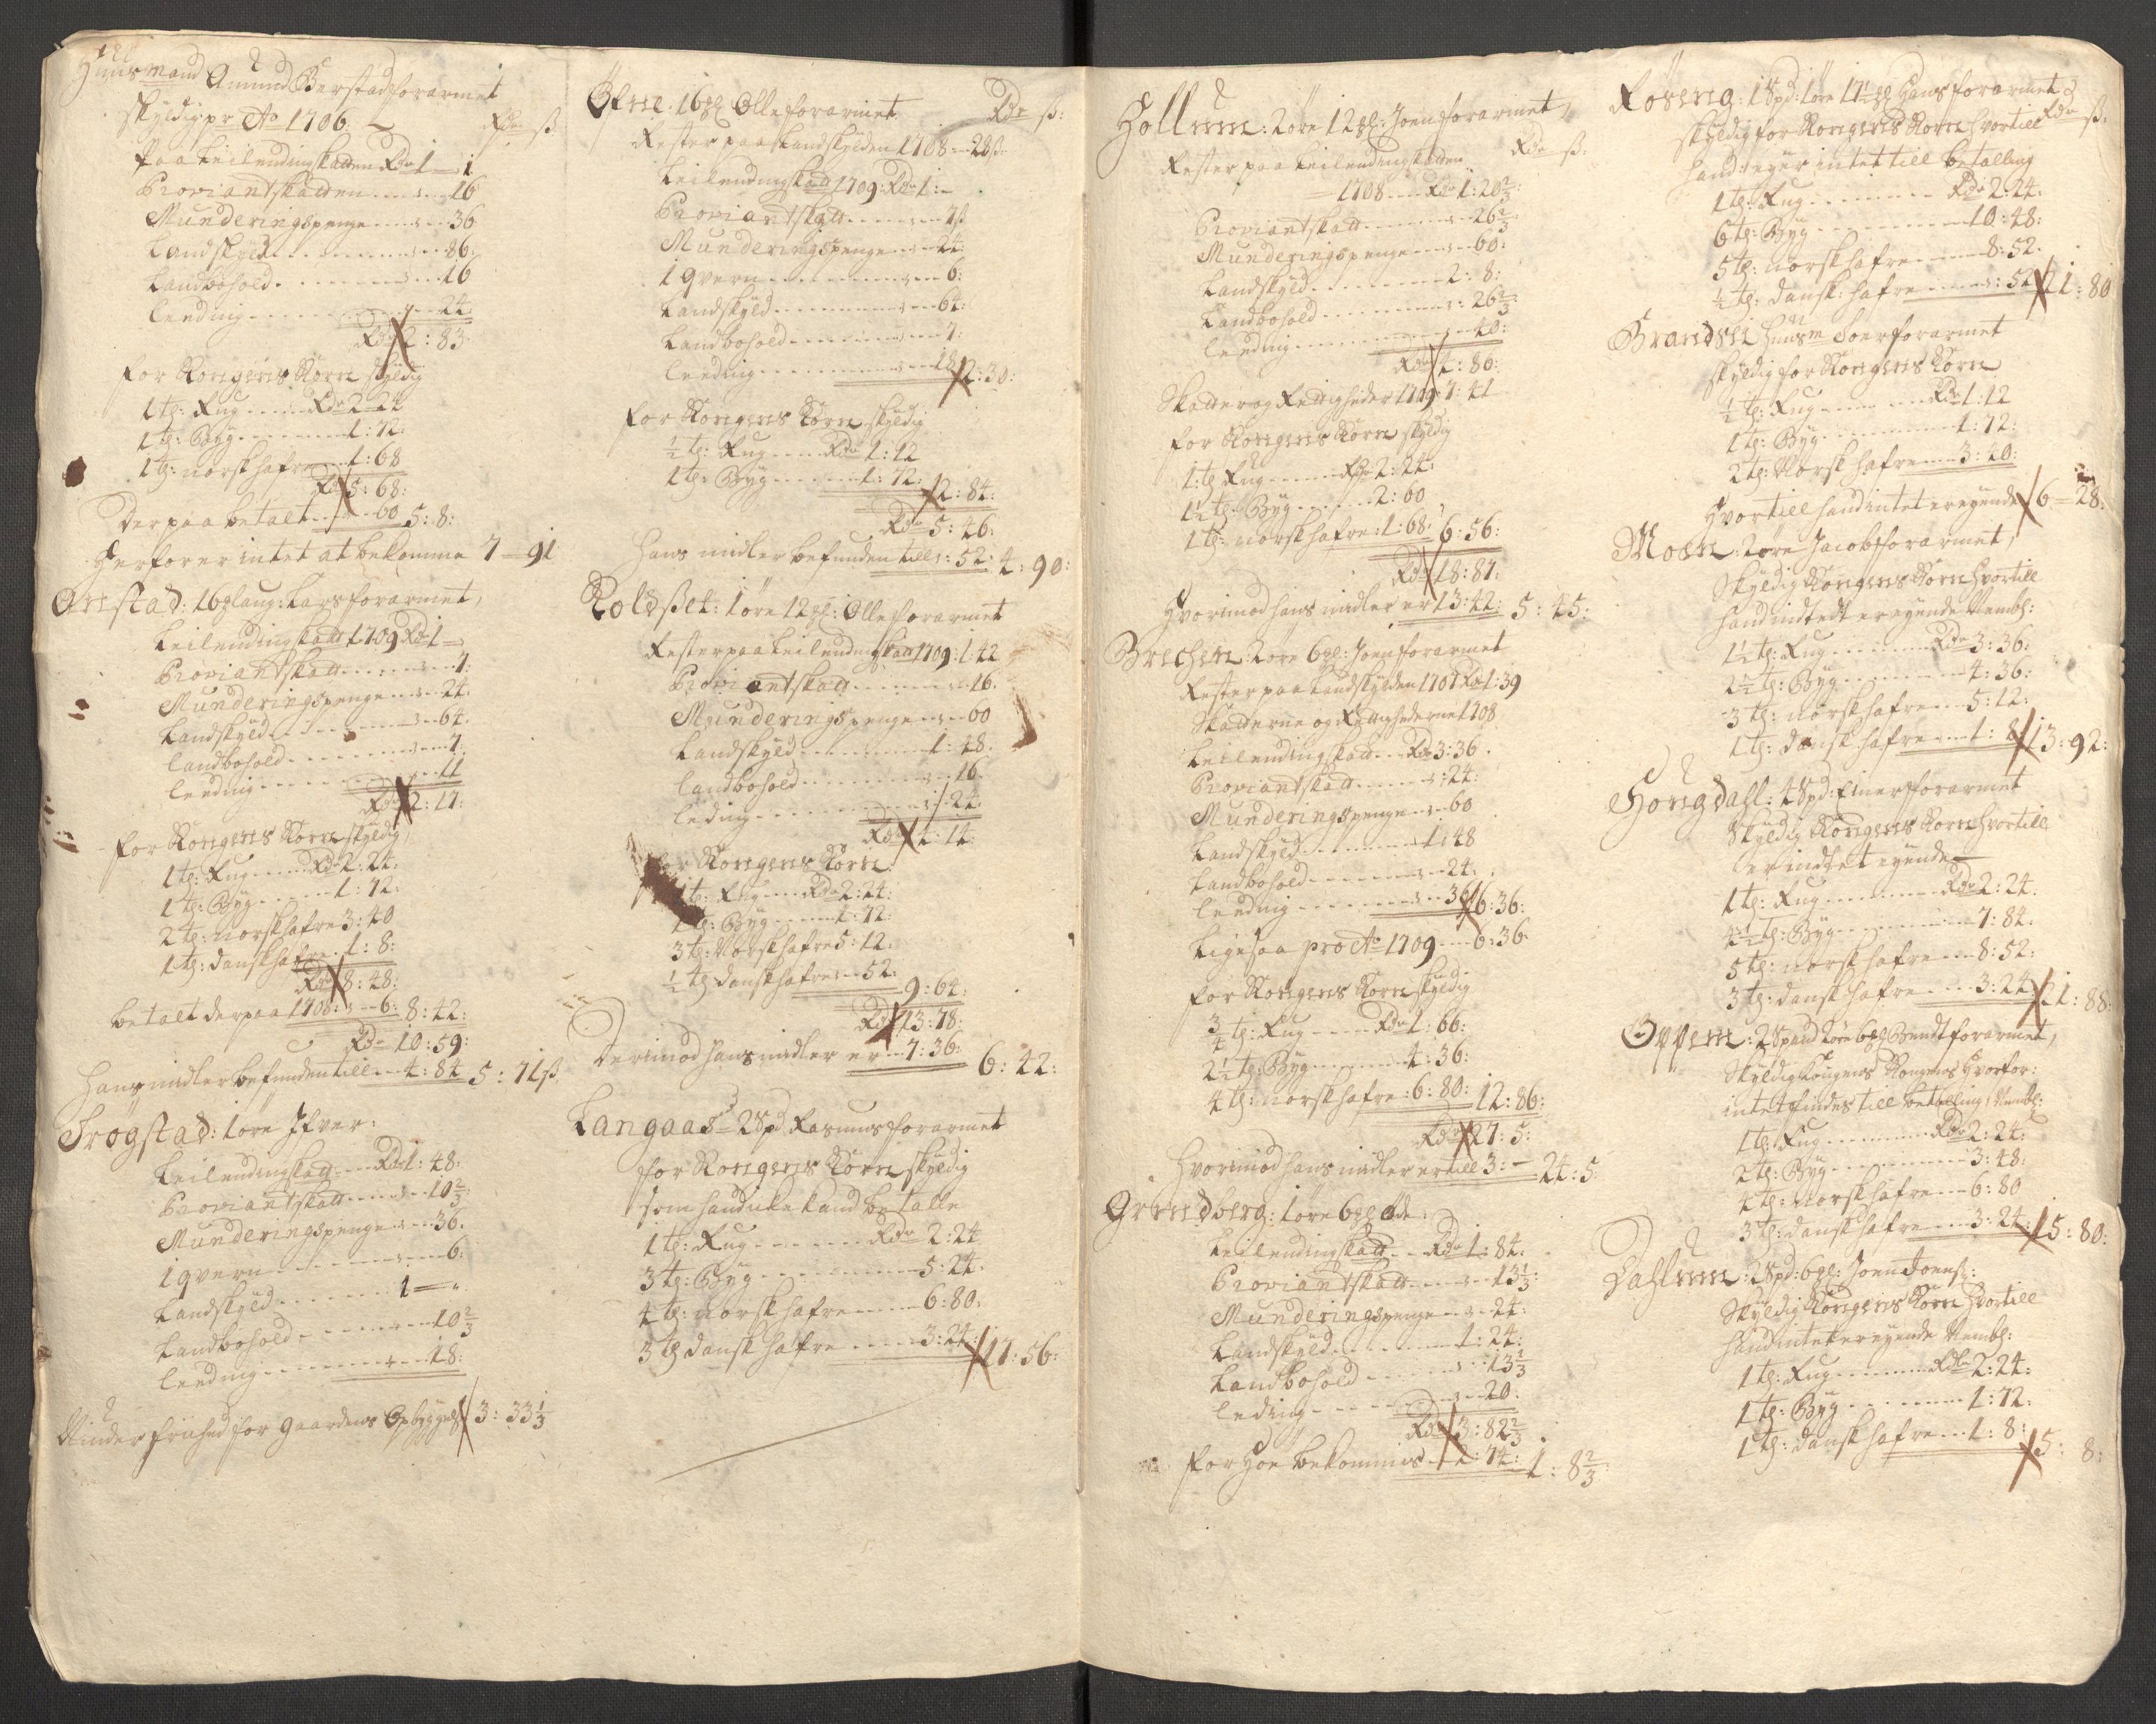 Huusmand Amund Berstad forarmet
skyldig pr Ao 1706 Rdr ß
Paa Leilendingskatten Rdr 1 - 1
Proviantskatten - - 16
Munderingspenge - - 36
Landskyld - - 86:
Landbohold - - 16
Leeding - - 24
Rdr 2: 83
for Kongens Korn skyldig
1 td: Rug - - Rdr 2-24
1 td: Byg - - 1: 72:
1 td: norsk hafre - 1: 68
Rdr 5: 68:
Derpaa betalt - - 60 5: 8:
Herfor er intet at bekomme 7 - 91
Onstad: 16 sl aug: Lars forarmet,
Leilendingskatt 1709 Rdr 1 -
Proviantskatt - - 7:
Munderingspenge - - 24:
Landskyld - - 64:
Landbohold - - 7
Leeding - - 11
Rdr 2: 17:
for Kongens Korn skyldig,
1 td: Rug - - Rdr 2: 24:
1 td: Byg - - 1: 72:
2 td: norsk hafre 3: 40
1 td: dansk hafre - 1: 8:
Rdr 8: 48:
betalt derpaa 1708: - 6: 8: 42:
Rdr 10: 59:
Hans midler befunden till - 4: 84 5: 71 ß
Frogstad: 1 øre Ifver:
Leilendingskatt - - Rdr 1: 48:
Proviantskatt - - 10 2/3:
Munderingspenge - - 36.
1 qvern - - 6:
Landskyld - - 1 - "
Landbohold - - 10 2/3
Leeding - - 18:
Nyder friehed for gaardens Opbygnelse 3: 33 1/3
Ofne: 16 sl Olle forarmet Rdr ß:
Rester paa Landskylden 1708 - 28 ß
Leilendingskatt 1709: Rdr 1: -
Proviantskatt - - 7 ß
Munderingspenge - - 24:
1 qvern - - 6:
Landskyld - - 64:
Landbohold - - 7:
Leeding - - 18 2: 30:
for Kongens Korn skyldig
1/2 td: Rug - - Rdr 1: 12
1 td: Byg - - 1: 72: 2: 84:
Rdr 5: 46:
Hans midler befunden till - 52: 4: 90:
Roldset: 1 øre 12 sl: Olle forarmet
Rester paa Leilendingskatt 1709: 1: 42
Proviantskatt - - 16.
Munderingspenge - - 60
Landskyld - - 1: 48.
Landbohold - - 16
Leding - - 24.
Rdr 4: 14:
for Kongens Korn.
1 td: Rug - - Rdr 2: 24:
1 td: Byg - - 1: 72:
3 td: Norsk hafre 5: 12:
1/2 td dansk hafre - - 52:
9: 64:
Rdr 13: 78:
Derimod hans midler er - 7: 36: 6: 42:
Langaas - 2 Spd Rasmus forarmet
for Kongens Korn skyldig
som hand icke kand betalle
1 td: Rug - - Rdr 2: 24
3 td: Byg - - 5: 24:
4 td: norsk hafre - - 6: 80:
3 td dansk hafre - - 3: 24: 17: 56:
Hollum: 2 øre 12 sl: Joen forarmet,
Rester paa Leilendingskatten Rdr ß:
1708 - - Rdr 1: 20 2/3:
Proviantskatt - - 26 2/3:
Munderingspenge - - 60:
Landskyld - - 2: 8:
Landbohold - - 26 2/3:
Leeding - - 40:
Rdr 4: 80:
Skatter og Rettigheder 1709 7: 41
for Kongens Korn skyldig
1: td Rug - - Rdr 2: 24:
1 1/2 td: Byg - - 2: 60
1 td: norsk hafre: 1: 68: 6: 56:
Rdr 18: 87:
Hvorimod hans midler er 13: 42: 5: 45:
Brechen: 2 øre 6 sl: Joen forarmet
Rester paa Landskylden 1707 Rdr 1: 39
Skatterne og Rettighederne 1708
Leilendingskatt - - Rdr 3: 36.
Proviantskatt - - 24:
Munderingspenge - - 60
Landskyld - - 1: 48
Landbohold - - 24:
Leeding - - 36 6: 36:
Ligesaa pro Ao 1709 - - 6: 36
for Kongens Korn skyldig
3/4 td: Rug - - Rdr 1: 66:
2 1/2 td: Byg - - 4: 36:
4 td: norsk hafre: 6: 80: 12: 86:
Rdr 27: 5:
Hvorimod hans midler er till 3: - 24: 5
Grindberg: 1 øre 6 sl øde:
Leilendingskatt - - Rdr 1: 84:
Proviantskatt - - 13 1/3:
Munderingspenge - - 24:
Landskyld - - 1: 24:
Landbohold - - 13 1/3
Leding - - 20:
Rdr 3: 82 2/3
for Høe bekommis - 2: 74: 1: 8 2/3
Roseng: 1 Spd: 1 øre 17 1/2 sl Hans forarmet
skyldig for Kongens Korn hvortill Rdr ß:
hand: eyer intet till betalling
1 td: Rug - - Rdr 2: 24:
6 td: Byg - - 10: 48:
5 td: norsk hafre - - 8: 52:
1/2 td: dansk: hafre - - 52 21: 80
Brandsli Huusm Joer forarmet
skyldig for Kongens Korn
1/2 td: Rug - - Rdr 1: 12
1 td: Byg - - 1: 72:
2 td: Norsk hafre - - 3: 40:
Hvortill hand intet er eyende 6 - 28:
Moen: 2 øre Jacob forarmet,
Skyldig Kongens Korn hvortill
hand indtedt er eyende Nembl:
1 1/2 td: Rug - - Rdr 3: 36:
2 1/2 td: Byg - - 4: 36:
3 td: norsk hafre - - 5: 12:
1 td: dansk: hafre - - 1: 8 13: 92:
Hongdahl: 4 Spd: Einer forarmet
Skyldig Kongens Korn hvortill
er indtet eyende
1 td: Rug - - Rdr 2: 24.
4 1/2 td: Byg - - 7: 84:
5 td: norsk hafre - - 8: 52:
3 td: dansk hafre - - 3: 24: 21: 88:
Oppem: 2 Spand 2 øre 6 sl Bendt forarmet,
Skyldig Kongens Kongens Hvorfor:
intet findes till betalling, Nembl:
1 td: Rug - - Rdr 2: 24:
2 td: Byg - - 3: 48:
4 td: norsk hafre - - 6: 80
3 td: dansk hafre - - 3: 24: 15: 80:
Dahlum: 2 Spd: 6 sl: Joen Joens:
Skyldig Kongens Korn hvortill
hand intet er eyende Nembl:
1 td: Rug - - Rdr 2: 24:
1 td: Byg - - 1: 72.
1 td: dansk hafre - - 1: 8: 5: 8: